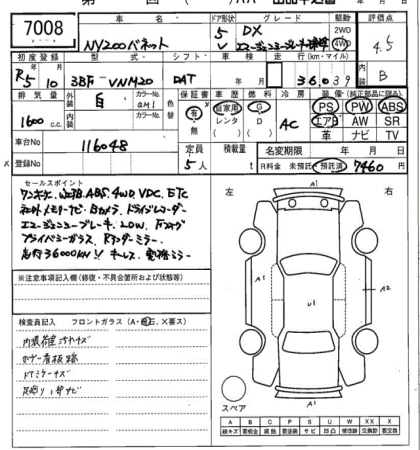 7008
車名
NV200バネット
ドア形状
5
V
グレード
DX
エマージェンシーブレーキ
駆動
2WD
4WD
評価点
4.5
初度登録
R5年10月
型式
3BF-VNM20
シフト
DAT
車検
年 月
走行(km・マイル)
36,039
内装
B
排気量
1600 c.c.
外装
白
カラーNo.
QM1
内装
カラーNo.
色替
保証書
有
無
車歴
自家用
レンタ
燃料
G
D
冷房
AC
装備(純正部品に限る)
PS PW ABS
エアB AW SR
革 ナビ TV
車台No
116048
登録No
定員
5人
積載量
t
名変期限
年 月 日
R料金 未預託
預託済 7460 円
セールスポイント
ワンオーナー、WエアB、ABS、4WD、VDC、ETC
社外メモリーナビ・Bカメラ、ドライブレコーダー
エマージェンシーブレーキ、LDW、Fフォグ
プライバシーガラス、Rアンダーミラー
走行36000KM!! キーレス、電格ミラー
※注意事項記入欄(修復・不具合箇所および状態等)
検査員記入 フロントガラス(A・飛石、X要ス)
内装荷室汚れキズ
ボデー看板跡
ドアミラーキズ
足廻り、下部サビ
左
右
A1
A1
U1
A2
A1
スペア
A B C P S U W X XX
線キズ 要板金 腐蝕 要塗装 サビ 凹凸 補修跡 要交換 交換済